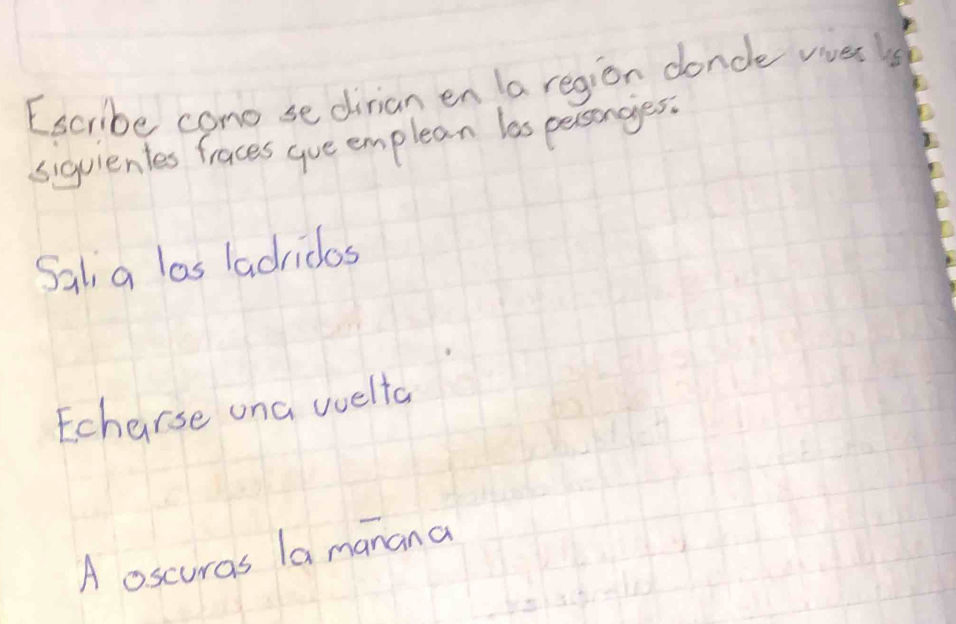 Escribe como se dirian en la región donde vives las
siguientes fraces que emplean los personajes:
Sali a los ladridos
Echarse una vuelta
A oscuras la mañana